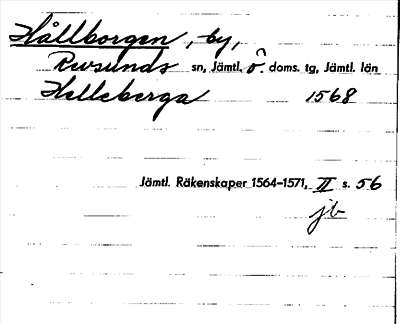 Hållborgen, by,
Revsunds sn, Jämtl. ö. doms. tg, Jämtl. län
Helleberga 1568
Jämtl. Räkenskaper 1564-1571, II s. 56
jb